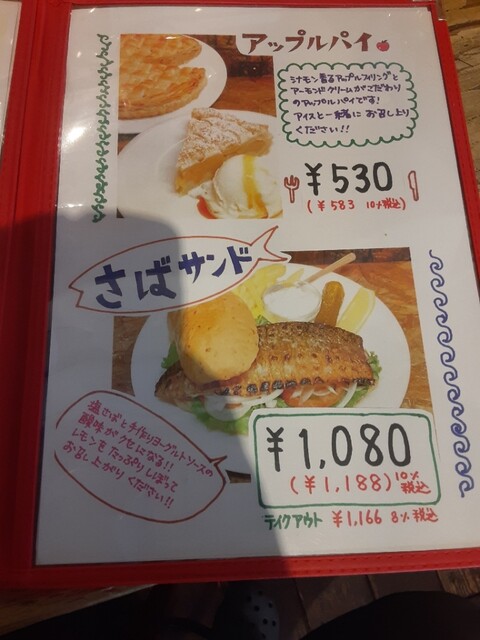 アップルパイ
シナモン香るアップルフィリングと
アーモンドクリームがこだわり
のアップルパイです!
アイスと一緒に お召し上り
ください!!
¥530
(¥583 10%税込)
さばサンド
塩さばと手作りヨーグルトソースの
酸味がクセになる!!
レモンをたっぷりしぼって
お召し上がりください!!
¥1,080
(¥1,188) 10%税込
テイクアウト ¥1,166 8%税込